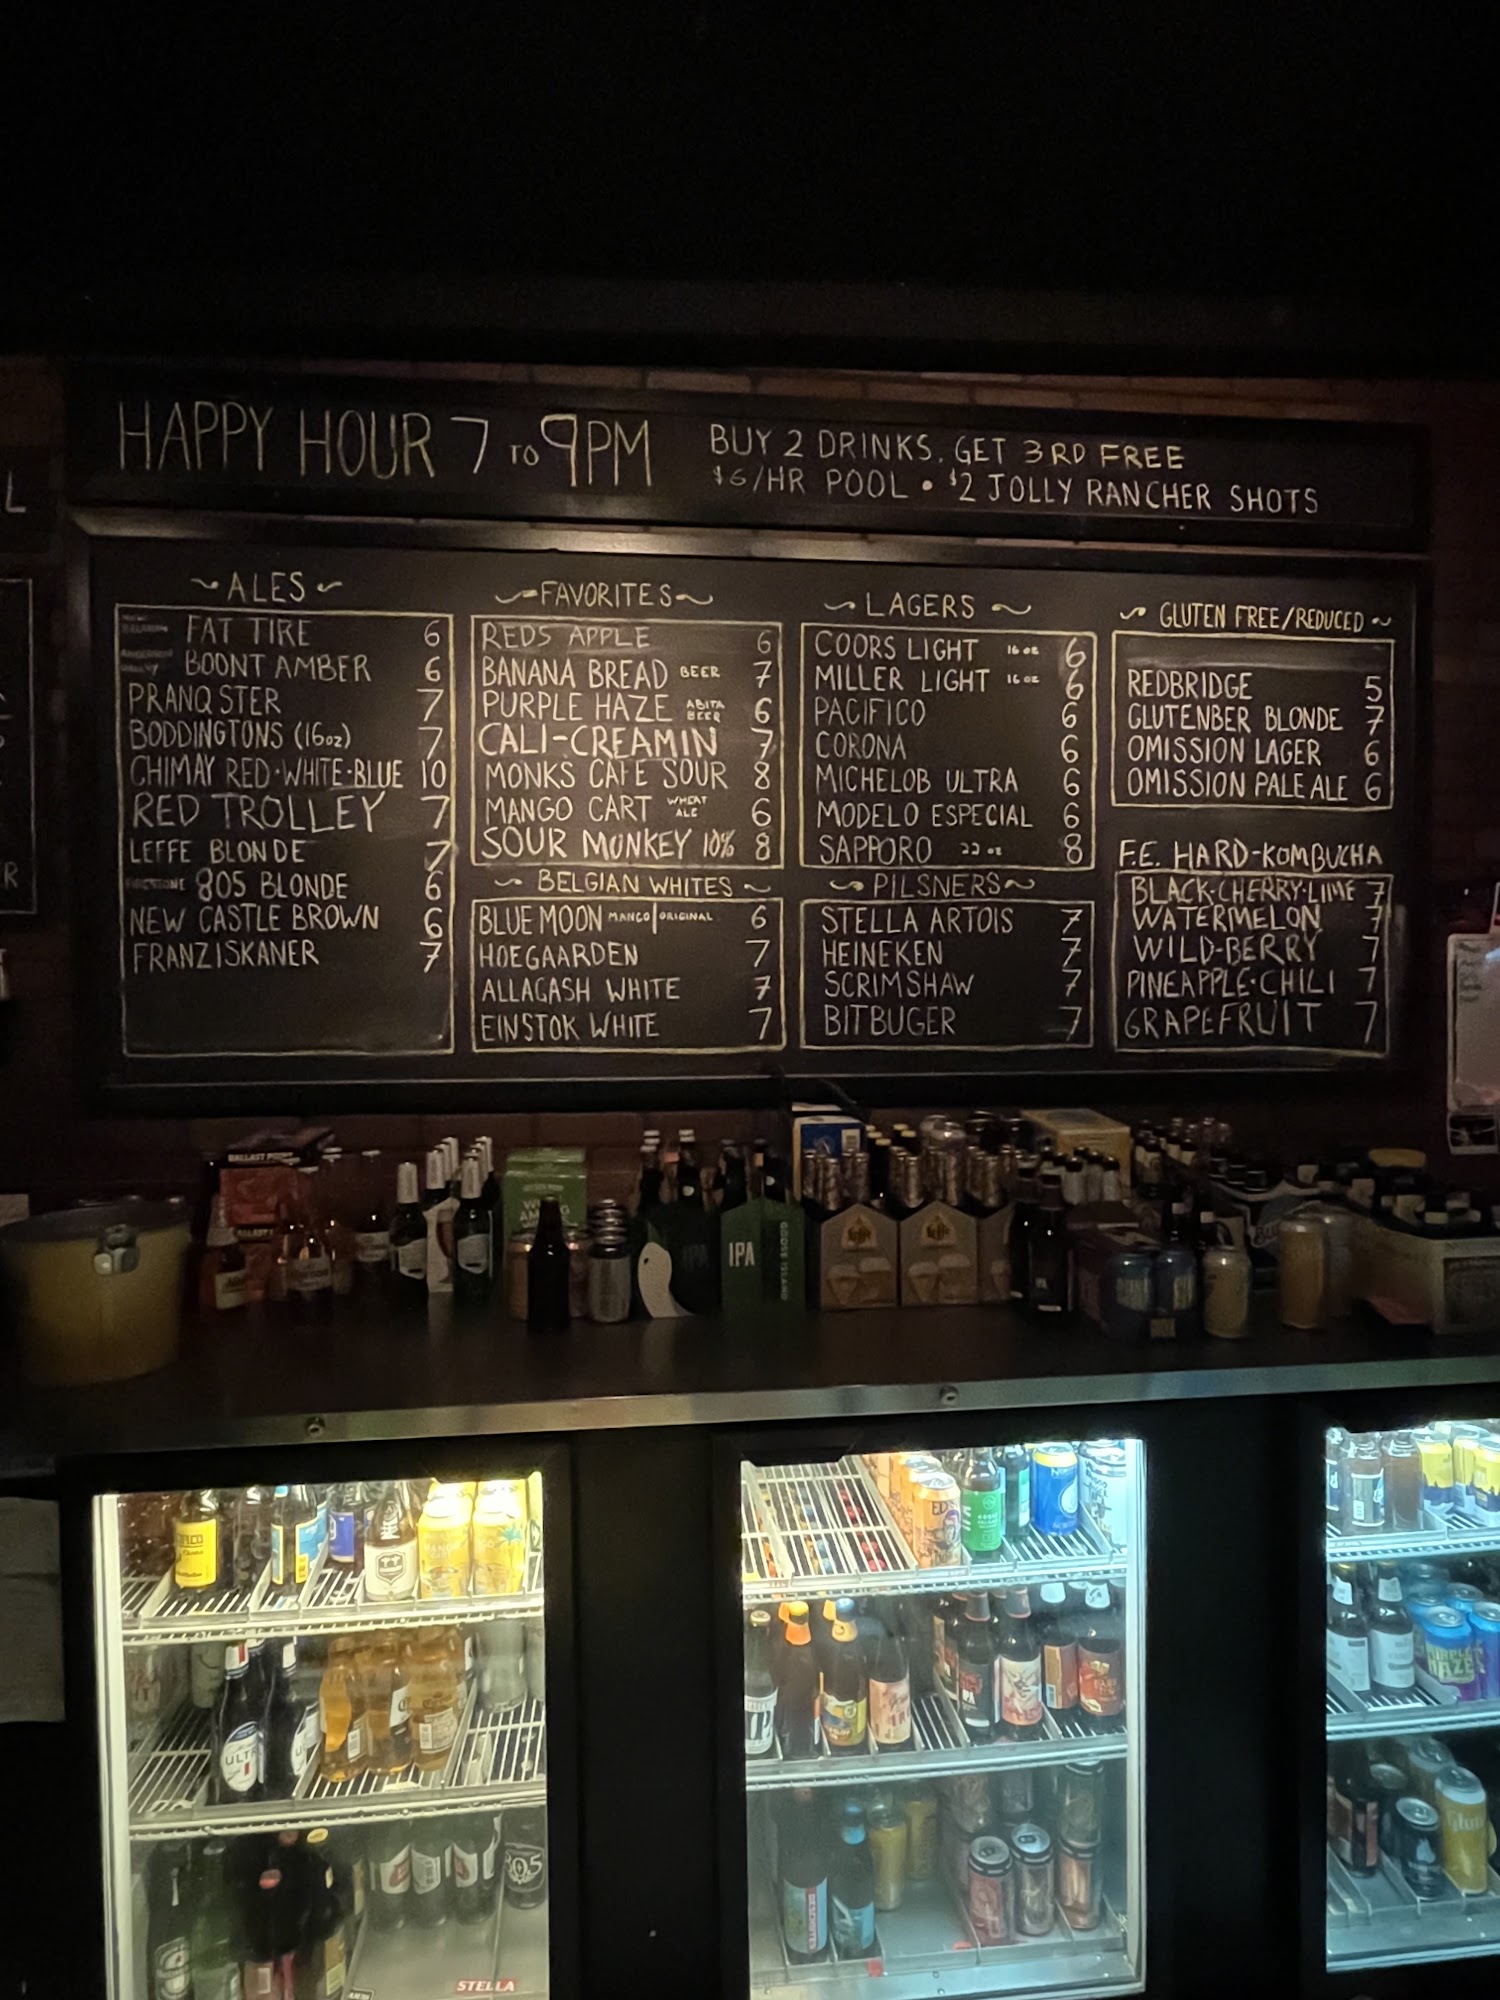 HAPPY HOUR 7 TO 9PM
BUY 2 DRINKS, GET 3RD FREE
$6/HR POOL • $2 JOLLY RANCHER SHOTS
ALES
FAT TIRE 6
BOONT AMBER 6
PRANQSTER 7
BODDINGTONS (16oz) 7
CHIMAY RED·WHITE·BLUE 10
RED TROLLEY 7
LEFFE BLONDE 7
FIRESTONE 805 BLONDE 6
NEW CASTLE BROWN 6
FRANZISKANER 7
FAVORITES
REDS APPLE 6
BANANA BREAD BEER 7
PURPLE HAZE ABITA BEER 6
CALI-CREAMIN 7
MONKS CAFE SOUR 8
MANGO CART WHEAT ALE 6
SOUR MONKEY 10% 8
BELGIAN WHITES
BLUE MOON MANGO|ORIGINAL 6
HOEGAARDEN 7
ALLAGASH WHITE 7
EINSTOK WHITE 7
LAGERS
COORS LIGHT 16 oz 6
MILLER LIGHT 16 oz 6
PACIFICO 6
CORONA 6
MICHELOB ULTRA 6
MODELO ESPECIAL 6
SAPPORO 22 oz 8
PILSNERS
STELLA ARTOIS 7
HEINEKEN 7
SCRIMSHAW 7
BITBUGER 7
GLUTEN FREE/REDUCED
REDBRIDGE 5
GLUTENBER BLONDE 7
OMISSION LAGER 6
OMISSION PALE ALE 6
F.E. HARD-KOMBUCHA
BLACK-CHERRY-LIME 7
WATERMELON 7
WILD-BERRY 7
PINEAPPLE·CHILI 7
GRAPEFRUIT 7
BALLAST POINT
IPA
GOOSE ISLAND
Leffe
Leffe
MANGO
ULTRA
805
STELLA
IPA
PURPLE
HAZE